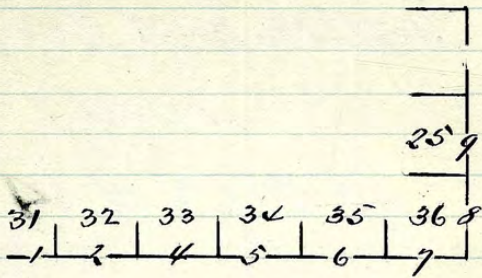 25 9
31 32 33 34 35 36 8
1 2 4 5 6 7